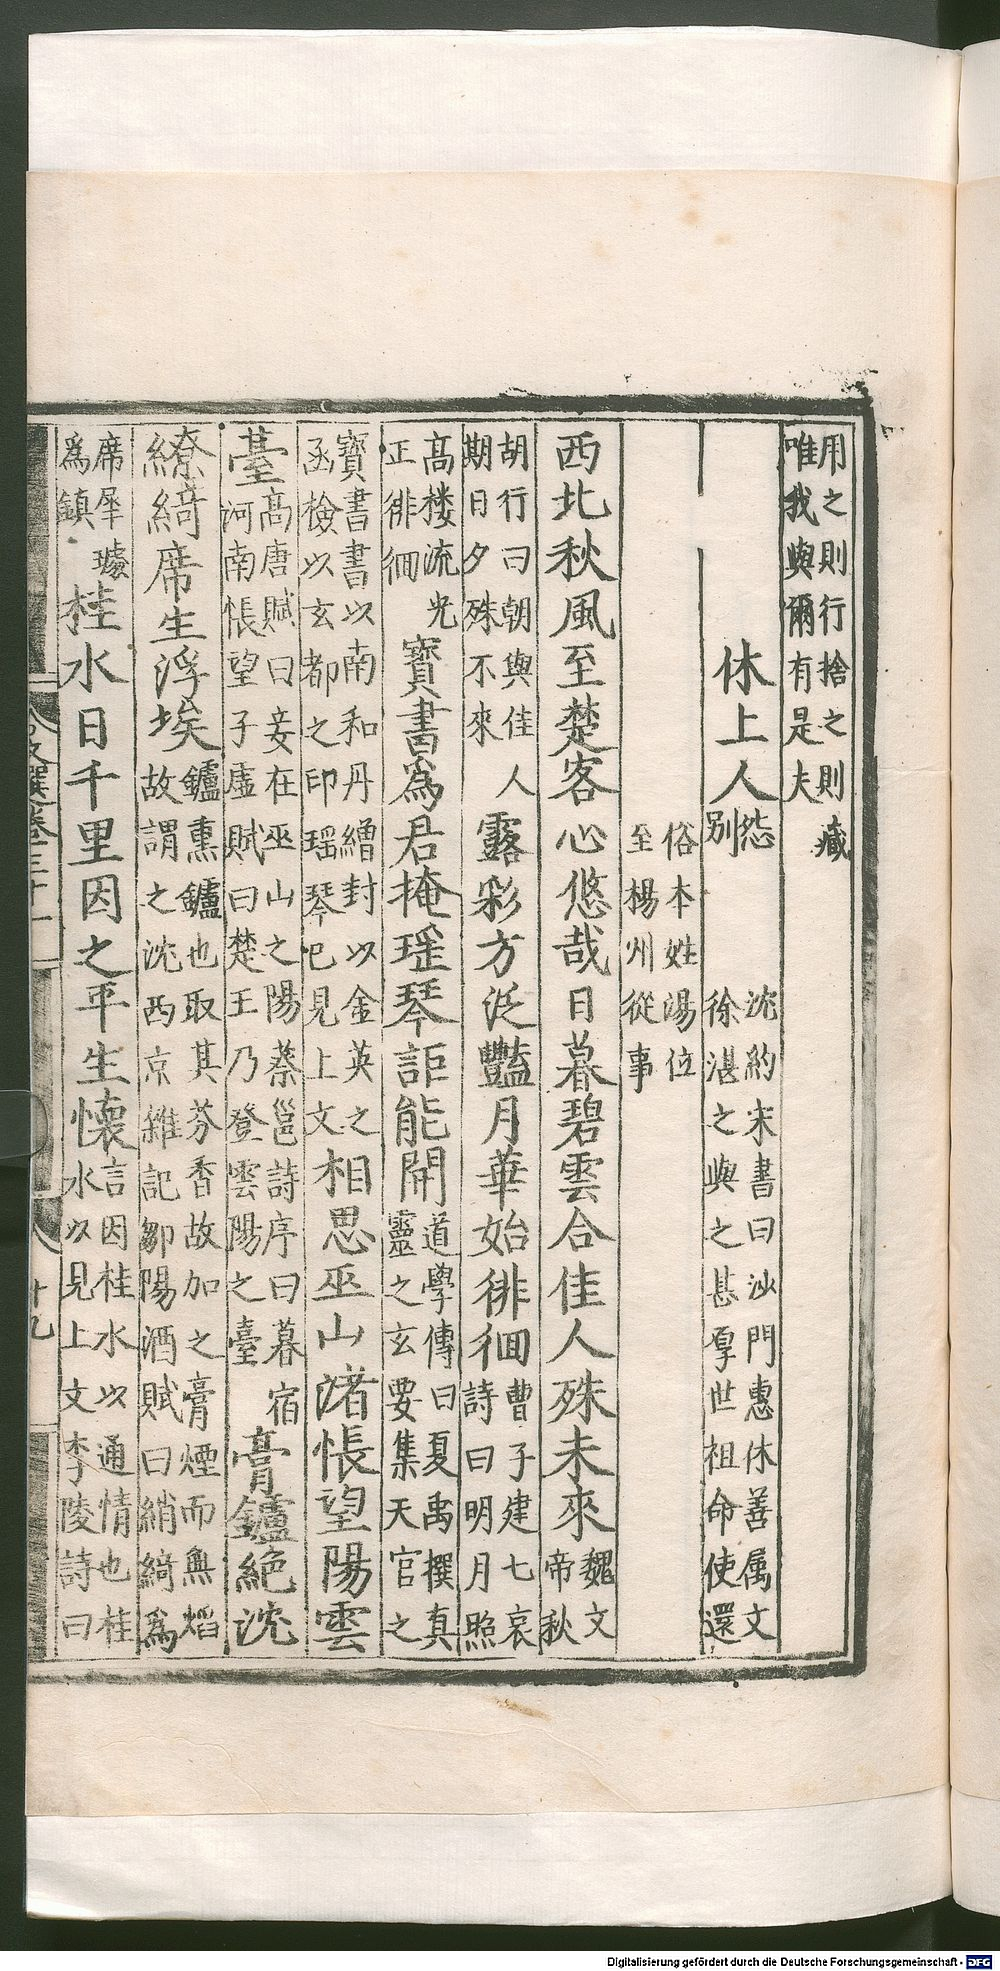 用之則行捨之則藏
唯我與爾有是夫
休上人
怨
別
沈約宋書曰沙門惠休善属文
徐湛之與之甚厚世祖命使還
俗本姓湯位
至楊州從事
西北秋風至楚客心悠哉日暮碧雲合佳人殊未來
魏文
帝秋
胡行曰朝與佳人
期日夕殊不來
露彩方泛豔月華始徘徊
曹子建七哀
詩曰明月照
高楼流光
正徘徊
寶書爲君掩瑶琴詎能開
道學傳曰夏禹撰真
靈之玄要集天官之
寶書書以南和丹繒封以金英之
函檢以玄都之印瑶琴巳見上文
相思巫山渚悵望陽雲
臺
高唐賦曰妾在巫山之陽蔡邕詩序曰暮宿
河南悵望子虛賦曰楚王乃登雲陽之臺
膏鑪絶沈
繚綺席生浮埃
鑪熏鑪也取其芬香故加之膏煙而無熖
故謂之沈西京雜記鄒陽酒賦曰綃綺爲
席犀璩
爲鎮
桂水日千里因之平生懷
言因桂水以通情也桂
水以見上文李陵詩曰
文選卷三十一
十九
Digitalisierung gefördert durch die Deutsche Forschungsgemeinschaft - DFG